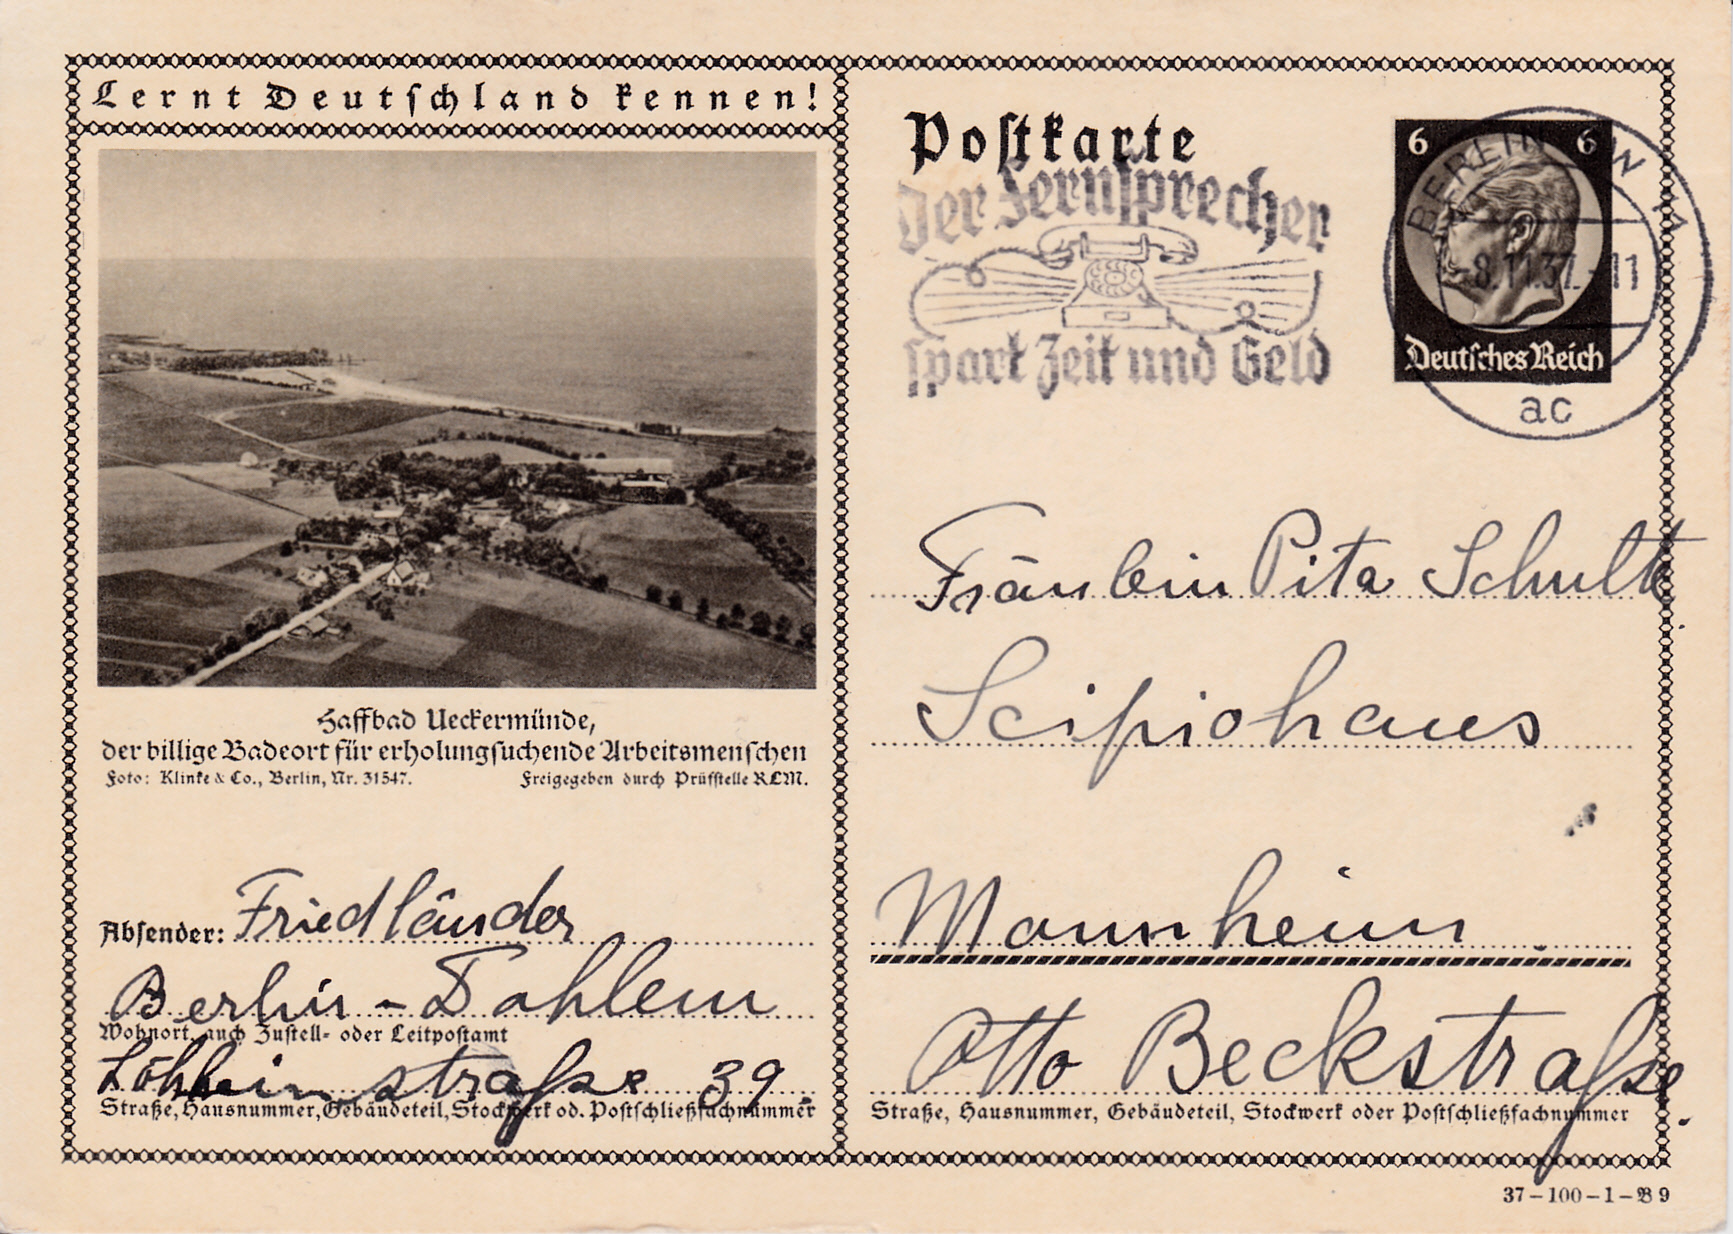 Lernt Deutschland kennen!
Haffbad Ueckermünde,
der billige Badeort für erholungsuchende Arbeitsmenschen
Foto: Klinke & Co., Berlin, Nr. 31547. Freigegeben durch Prüfstelle RLM.
Absender: Friedländer
Berlin-Dahlem
Wohnort, auch Zustell- oder Leitpostamt
Löhleinstraße 39.
Straße, Hausnummer, Gebäudeteil, Stockwerk od. Postschließfachnummer
Postkarte
Der Fernsprecher
spart Zeit und Geld
6 6
Deutsches Reich
BERLIN W
8.11.37.-11
ac
Fräulein Pita Schulte
Scipiohaus
Mannheim
Otto Beckstraße.
Straße, Hausnummer, Gebäudeteil, Stockwerk oder Postschließfachnummer
37-100-1-B9